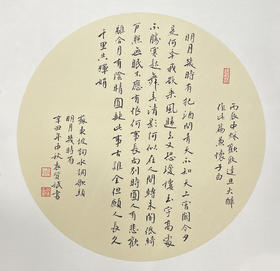 丙辰中秋歡飲達旦大醉
作此篇兼懷子由
明月幾時有把酒問青天不知天上宮闕今夕
是何年我欲乘風歸去又恐瓊樓玉宇高處
不勝寒起舞弄清影何似在人間轉朱閣低綺
戶照無眠不應有恨何事長向別時圓人有悲歡
離合月有陰晴圓缺此事古難全但願人長久
千里共嬋娟
蘇東坡詞水調歌頭
明月幾時有
辛丑年中秋書